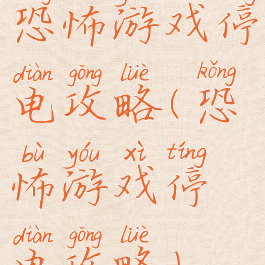 恐怖游戏停
diàn gōng lüè kǒng
电攻略(恐
bù yóu xì tíng
怖游戏停
diàn gōng lüè
电攻略)